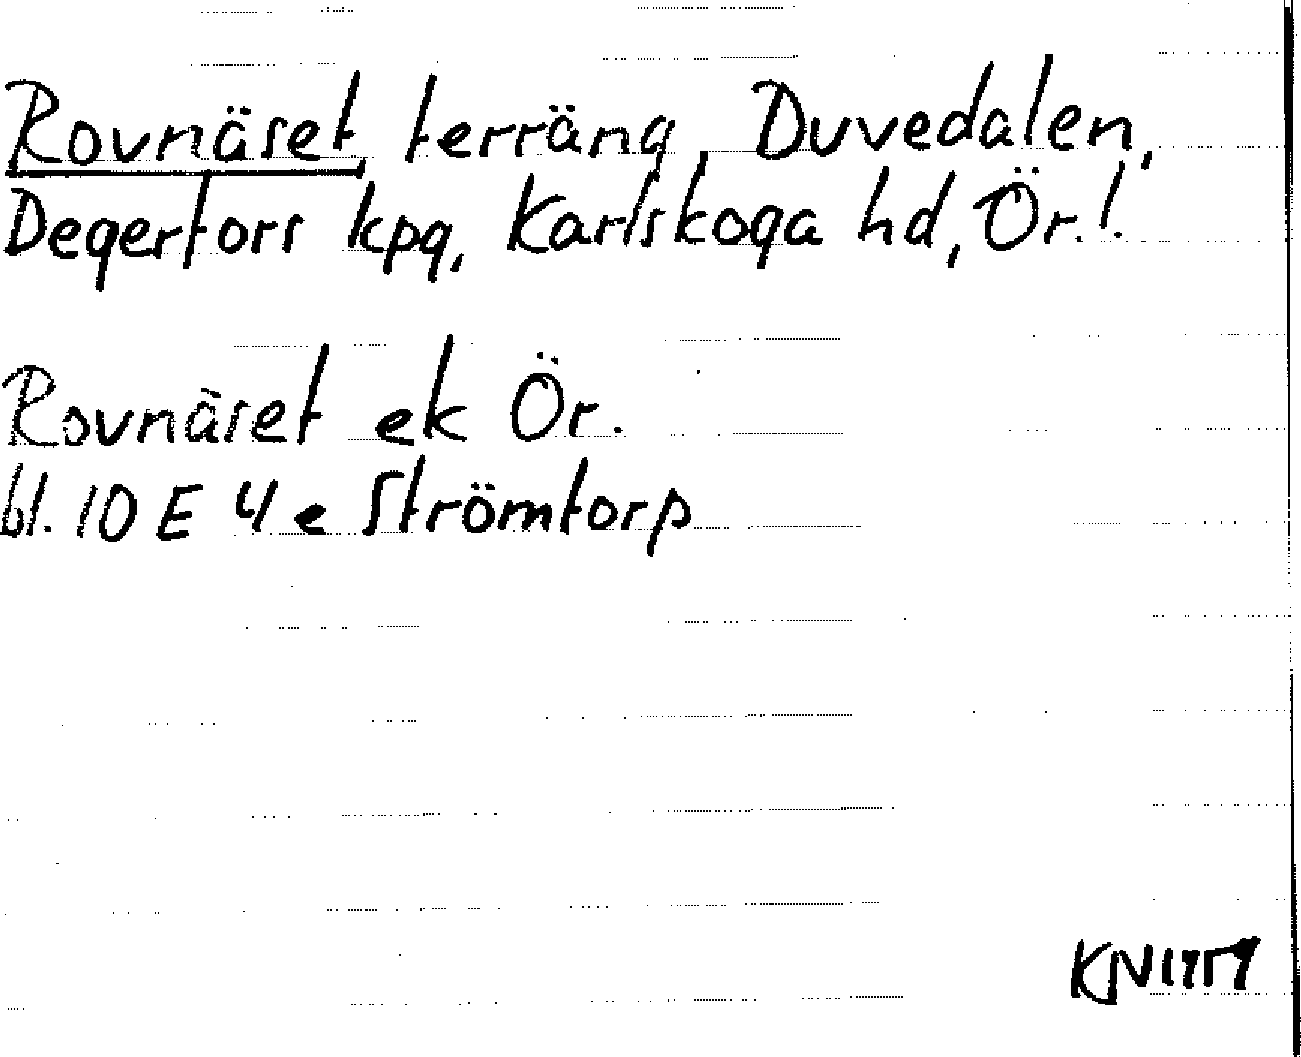 Rovnäset, terräng, Duvedalen,
Degerfors kpg, Karlskoga hd, Ör. l.
Rovnäset ek Ör.
bl. 10 E 4 e Strömtorp